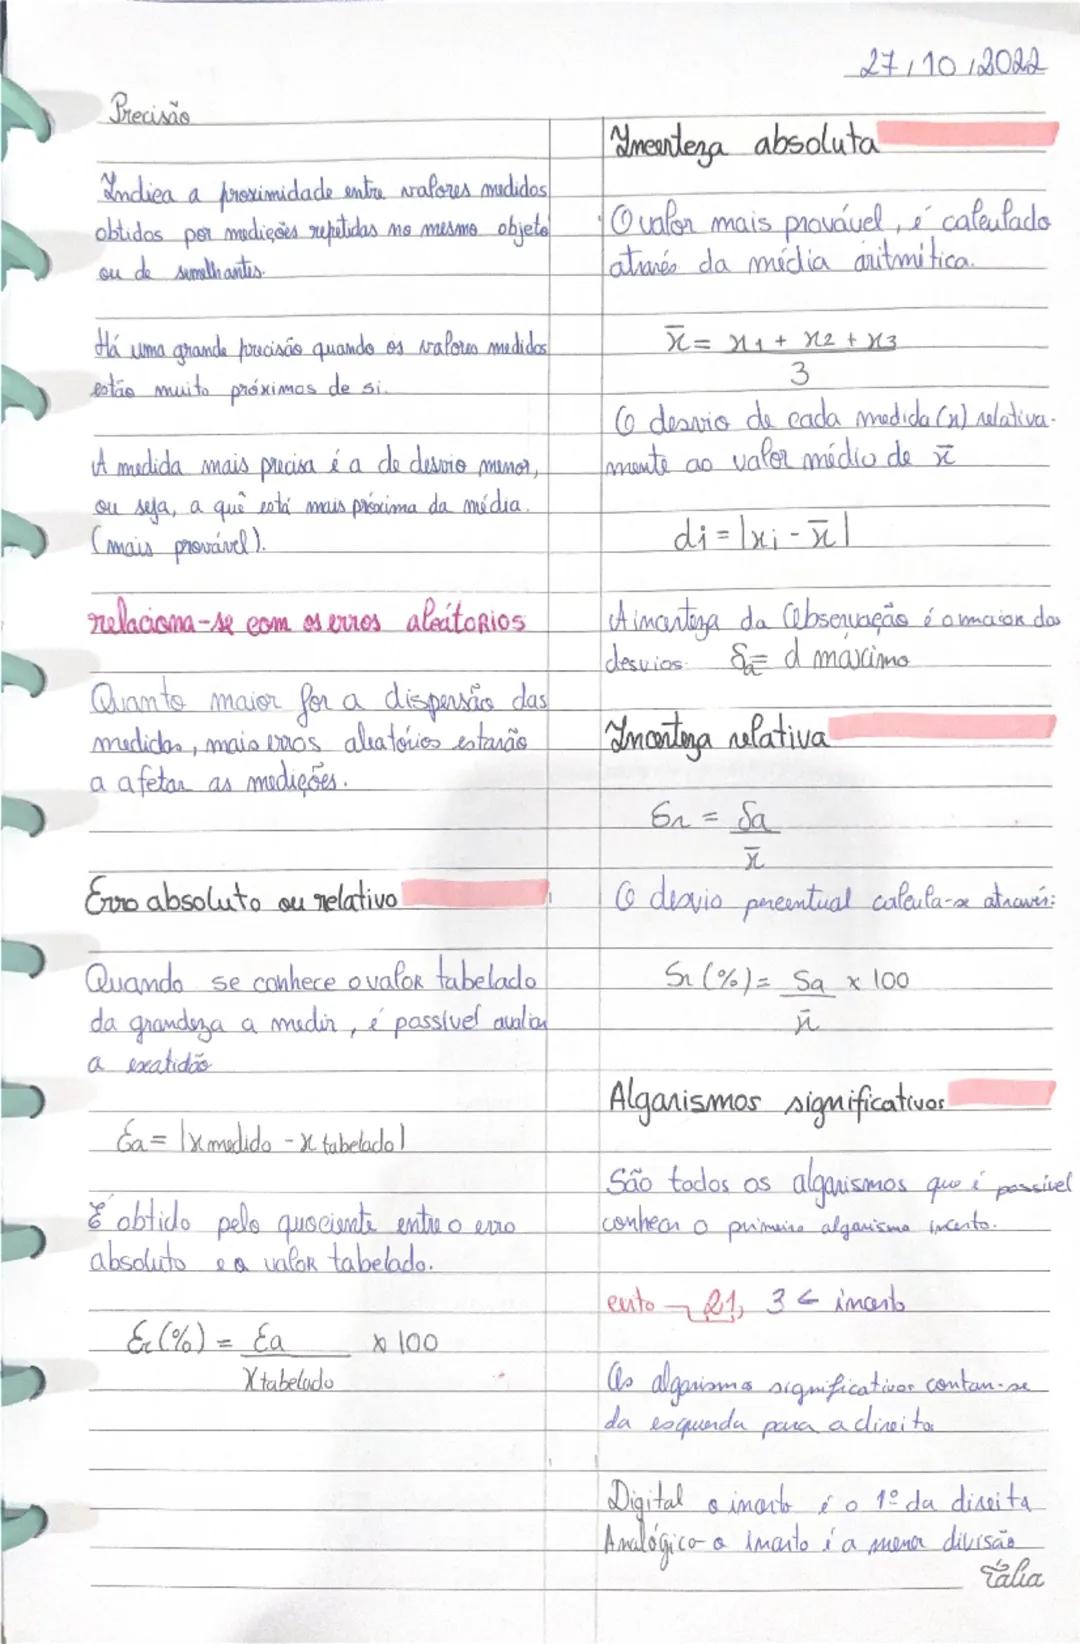 27/10/2022
Precisão
Indica a proximidade entre valores medidos
obtidos por medições repetidas no mesmo objeto
ou de semelhantes.
Há uma grande precisão quando os valores medidos
estão muito próximos de si.
A medida mais precisa é a de desvio menor,
ou seja, a quê está mais próxima da média.
(mais provável).
relaciona-se com os erros aleátorios
Quanto maior for a dispersão das
medidas, mais erros aleatórios estarão
a afetar as medições.
Erro absoluto ou relativo
Quando se conhece o valor tabelado
da grandeza a medir, é possível avaliar
a exatidão
Ea = |x medido - x tabelado|
É obtido pelo quociente entre o erro
absoluto e o valor tabelado.
Er(%) = Ea x 100
X tabelado
Incerteza absoluta
O valor mais provável, é calculado
através da média aritmética.
x̄ = x1 + x2 + x3
3
O desvio de cada medida (x) relativa-
mente ao valor médio de x̄
di = |xi - x̄|
A incerteza da Observação é o maior dos
desvios. δa = d máximo
Incerteza relativa
δr = δa
x̄
O desvio percentual calcula-se através:
δr (%) = δa x 100
x̄
Algarismos significativos
São todos os algarismos que é possível
conhecer o primeiro algarismo incerto.
certo → 21, 3 ← incerto
Os algarismos significativos contam-se
da esquerda para a direita
Digital o incerto é o 1º da direita
Analógico - o incerto é a menor divisão
Tália